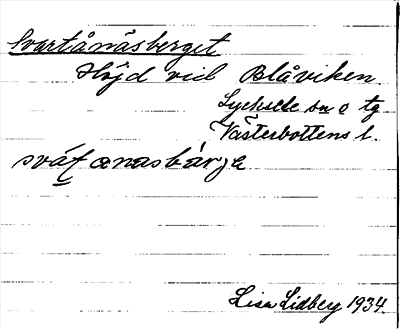 Svartånäsberget
Höjd vid Blåviken
Lycksele sn o tg
Västerbottens l.
svát ænasbárje
Lisa Lidberg 1934.